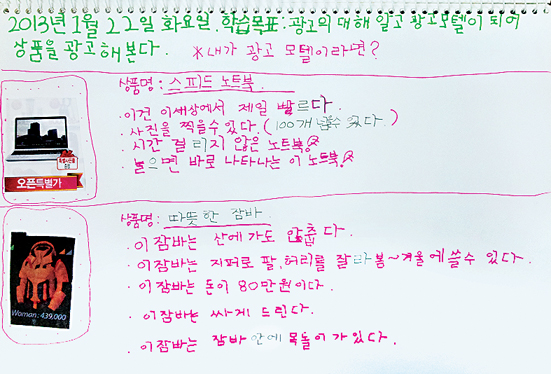 2013년 1월 22일 화요일. 학습목표: 광고의 대해 알고 광고모텔이 되어
상품을 광고해본다. *내가 광고 모텔이라면?
상품명: 스피드 노트북
· 이건 이세상에서 제일 빨르다.
· 사진을 찍을수있다 (100개 넘수 있다)
· 시간 걸리지 않은 노트북
· 눌으면 바로 나타나는 이 노트북
오픈특별가
상품명: 따뜻한 잠바
· 이잠바는 산에가도 안춥다.
· 이잠바는 지퍼로 팔, 허리를 잘라 봄~겨울에 쓸수 있다.
· 이잠바는 돈이 80만원이다.
· 이잠바는 싸게 드린다.
· 이잠바는 잠바 안에 목돌이가있다.
Woman: 439,000